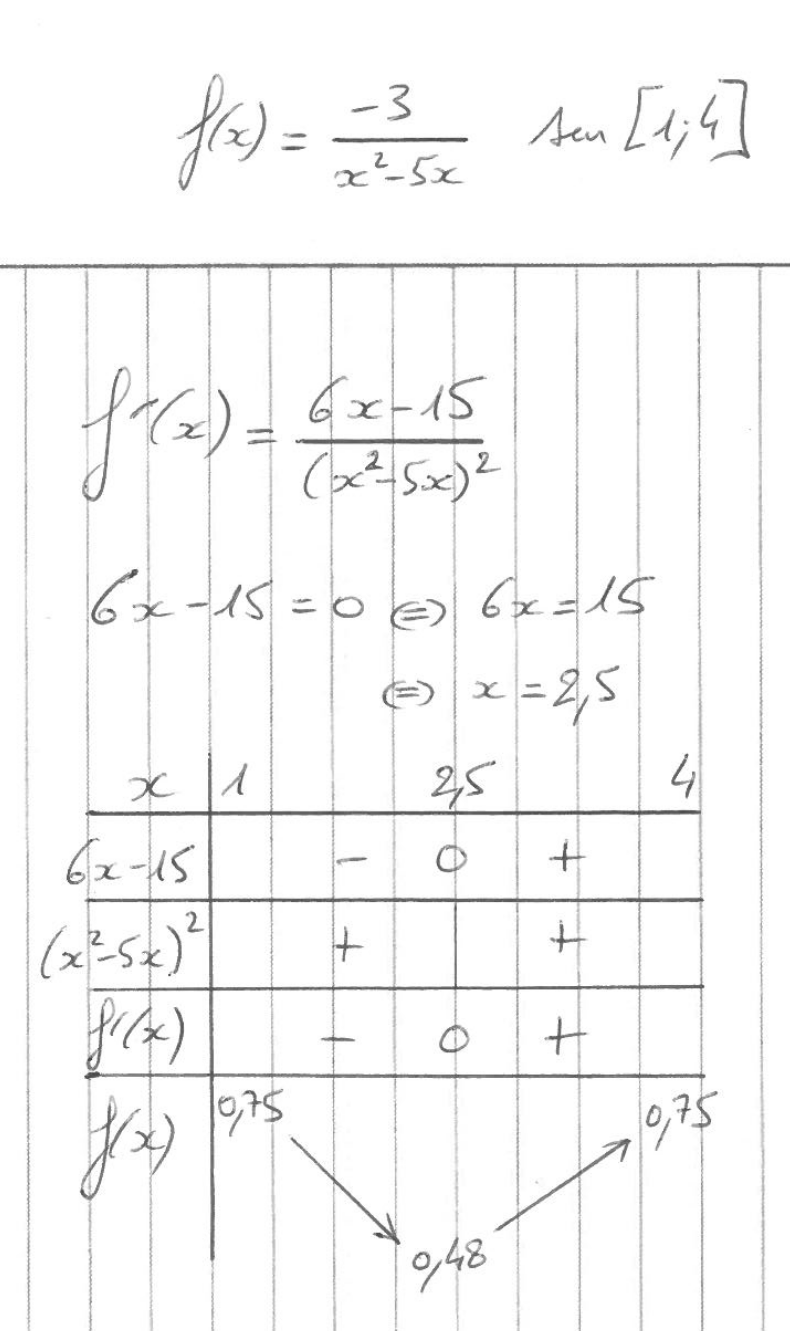 f(x) = -3 / (x² - 5x) sur [1;4]
f'(x) = (6x - 15) / (x² - 5x)²
6x - 15 = 0 ⇔ 6x = 15
⇔ x = 2,5
x 1 2,5 4
6x - 15 - 0 +
(x² - 5x)² + +
f'(x) - 0 +
f(x) 0,75 ↘ 0,48 ↗ 0,75